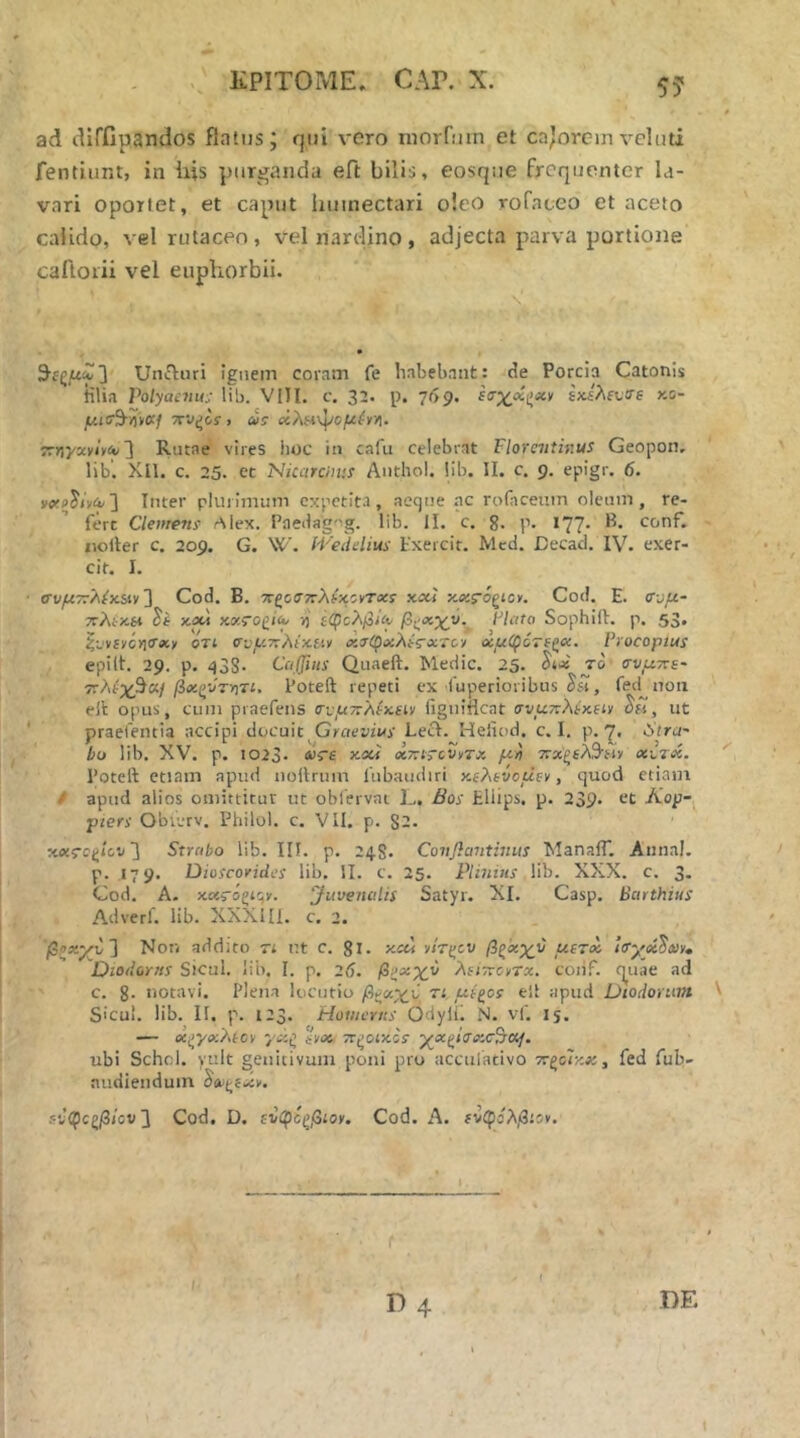 EPITOME. CAP. X. 55
ad diffipandos flatus; qui vero morfum et calorem veluti
fentiunt, in his purganda eft bilis, eosque frequenter la-
vari oportet, et caput humectari oleo rofaceo et aceto
calido, vel rutaceo, vel nardino, adjecta parva portione
caftorii vel euphorbii.
θερμῶ] Uncturi ignem coram fe habebant: de Porcia Catonis
filia Polyaenus lib. VIII. c. 32. p. 769. ἐσχάραν ἐκέλευσε κο-
μισθῆναι πυρὸς, ὡς ἀλειψομένη.
πηγανίνῳ] Rutae vires hoc in cafu celebrat Florentinus Geopon.
lib. XII. c. 25. et Nicarchus Anthol. lib. II. c. 9. epigr. 6.
ναρδίνῳ] Inter plurimum expetita, aeque ac rofaceum oleum, re-
fert Clemens Alex. Paedagog. lib. II. c. 8. p. 177. B. conf.
nofter c. 209. G. W. Wedelius Exercit. Med. Decad. IV. exer-
cit. I.
συμπλέκειν] Cod. B. προσπλέκοντας καὶ καστόριον. Cod. E. συμ-
πλέκει δὲ καὶ καστορίῳ ἢ εὐφολβίῳ βραχύ. Plato Sophift. p. 53.
ξυνενόησαν ὅτι συμπλέκειν ἀσφαλέστατον ἀμφότερα. Procopius
epift. 29. p. 438. Caffius Quaeft. Medic. 25. διὰ τὸ συμπε-
πλέχθαι βαρύτητι. Poteft repeti ex fuperioribus δεῖ, fed non
eft opus, cum praefens συμπλέκειν fignificat συμπλέκειν δεῖ, ut
praefentia accipi docuit Graevius Lect. Hefiod. c. I. p. 7. Stra-
bo lib. XV. p. 1023. ὥστε καὶ ἀπιστοῦντα μὴ παρελθεῖν αὐτά.
Poteft etiam apud noftrum fubaudiri κελεύομεν, quod etiam
apud alios omittitur ut obfervat L. Bos Ellips. p. 239. et Kop-
piers Obferv. Philol. c. VII. p. 82.
καστορίου] Strabo lib. III. p. 248. Conftantinus Manaff. Annal.
p. 179. Diofcorides lib. II. c. 25. Plinius lib. XXX. c. 3.
Cod. A. καστόριον. Juvenalis Satyr. XI. Casp. Barthius
Adverf. lib. XXXIII. c. 2.
βραχὺ] Non addito τι ut c. 81. καὶ νίτρου βραχὺ μετὰ ἰσχάδων.
Diodorus Sicul. lib. I. p. 26. βραχὺ λείποντα. conf. quae ad
c. 8. notavi. Plena locutio βραχύ τι μέρος eft apud Diodorum
Sicul. lib. II. p. 123. Homerus Odyff. N. vf. 15.
— ἀργαλέον γὰρ ἕνα προικὸς χαρίσασθαι.
ubi Schol. vult genitivum poni pro acculativo προῖκα, fed fub-
audiendum δωρεάν.
εὐφορβίου] Cod. D. εὐφόρβιον. Cod. A. εὐφόλβιον.
D 4 DE